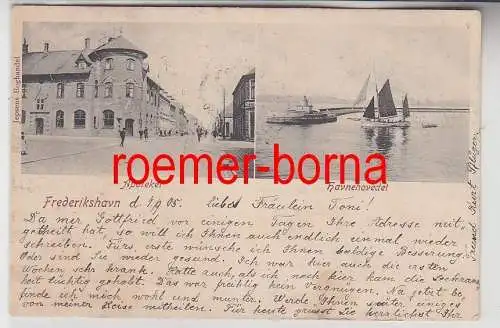 Jepsens Boghandel
roemer-borna
Apoteket
Havnehovedet
Frederikshavn d. 1/9 05. Liebes Fräulein Toni!
Da mir Gottfried vor einigen Tagen Ihre Adresse mit-
geteilt hat, so will ich Ihnen auch endlich einmal wieder
schreiben. Fürs erste wünsche ich Ihnen baldige Besserung,
Oder sind Sie wieder gesund. Ich war hier auch die ersten
Wochen sehr krank. Hatte auch, als ich nach hier kam die Seekrank-
heit tüchtig gehabt. Das war freilich kein Vergnügen. Na jetzt be-
finde ich mich wohl und munter. Werde Ihnen später einiges
von meiner Reise mitteilen. Für heute grüsst Sie herzlichst Ihr
Freund Kurt